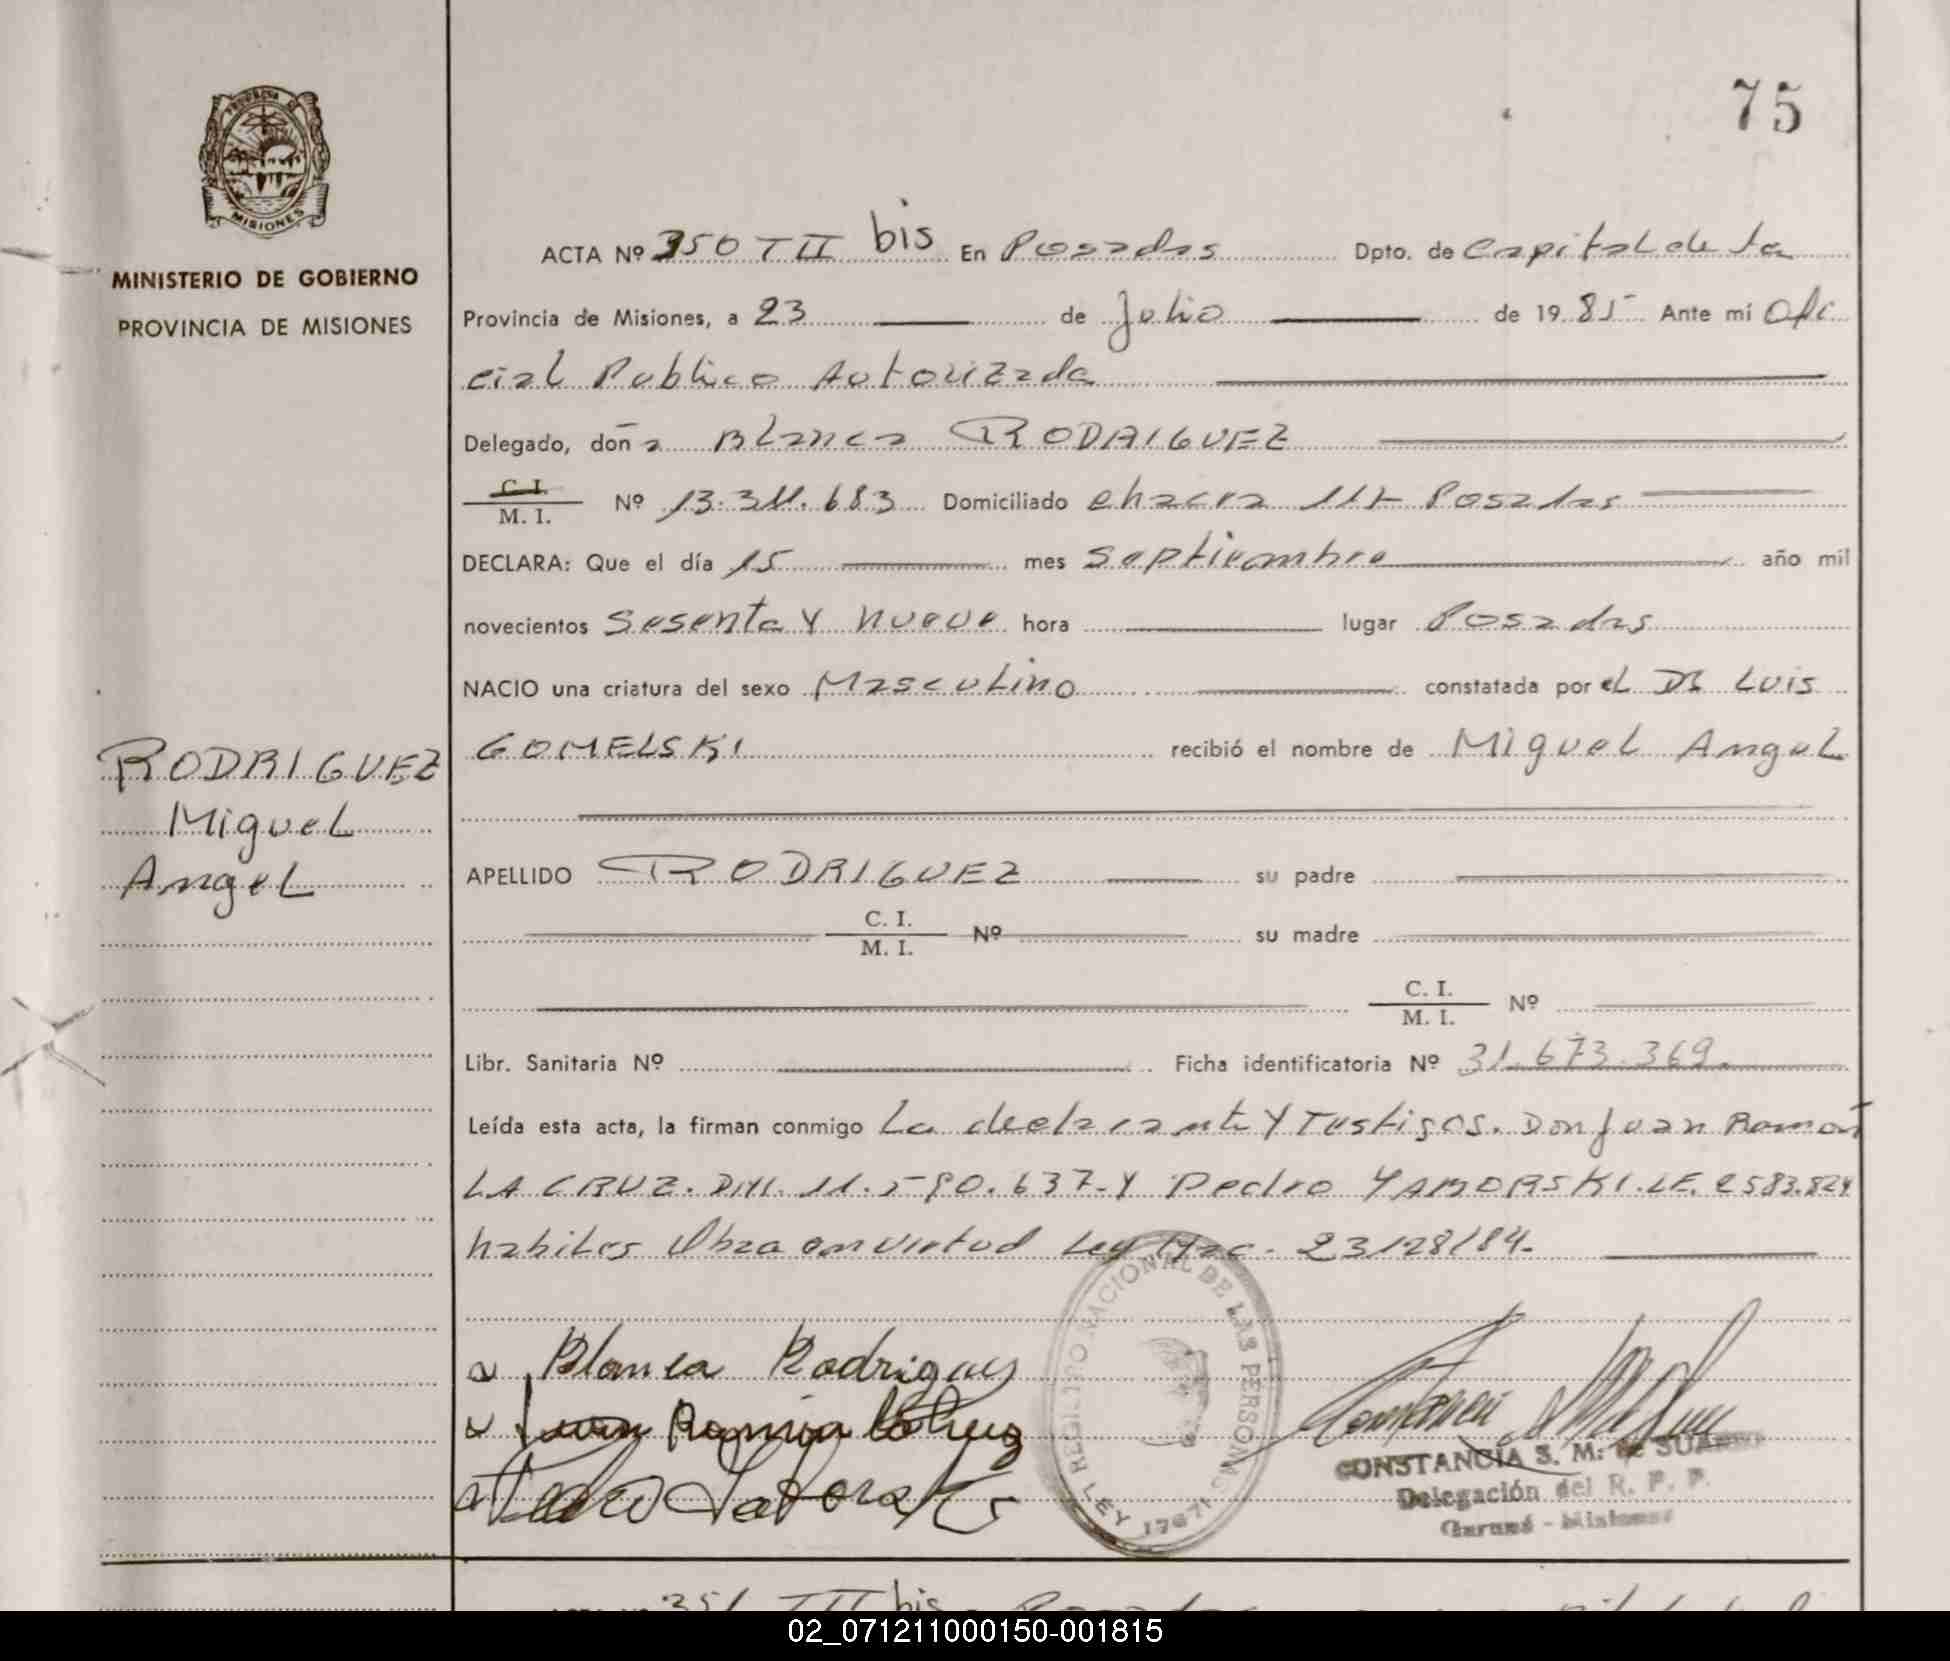 75
PROVINCIA DE
MISIONES
MINISTERIO DE GOBIERNO
PROVINCIA DE MISIONES
ACTA Nº 350 T II bis En Posadas Dpto. de Capital de la
Provincia de Misiones, a 23 de Julio de 1985 Ante mí Ofi
cial Publico Autorizada
Delegado, doña Blanca RODRIGUEZ
C. I.
M. I. Nº 13.311.683 Domiciliado chacra Posadas
DECLARA: Que el día 15 mes septiembre año mil
novecientos sesenta y nueve hora lugar Posadas
NACIO una criatura del sexo Masculino constatada por el Dr Luis
GOMELSKI recibió el nombre de Miguel Angel
RODRIGUEZ
Miguel
Angel
APELLIDO RODRIGUEZ su padre
C. I.
M. I. Nº su madre
C. I.
M. I. Nº
Libr. Sanitaria Nº Ficha identificatoria Nº 31.673.369.
Leída esta acta, la firman conmigo La declarante y Testigos. Don Juan Ramón
LA CRUZ. DNI. 11.590.637 y Pedro YABORSKI. LE. 2583.824
habiles Obra en virtud Ley Nac. 23128/84.
Blanca Rodriguez
Juan Ramón
Pedro
REGISTRO NACIONAL DE LAS PERSONAS
LEY 17671
CONSTANCIA S. M. de SUAREZ
Delegación del R. P. P.
Garupá - Misiones
351 T II bis Posadas
02_071211000150-001815